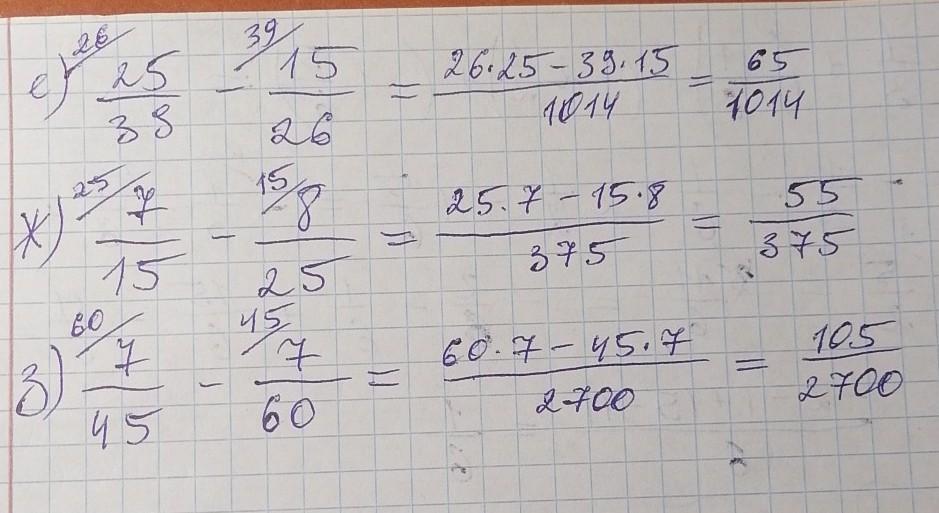 е) ²⁶⁄ 25/39 - ³⁹⁄ 15/26 = (26·25 - 39·15)/1014 = 65/1014
ж) ²⁵⁄ 7/15 - ¹⁵⁄ 8/25 = (25·7 - 15·8)/375 = 55/375
з) ⁶⁰⁄ 7/45 - ⁴⁵⁄ 7/60 = (60·7 - 45·7)/2700 = 105/2700